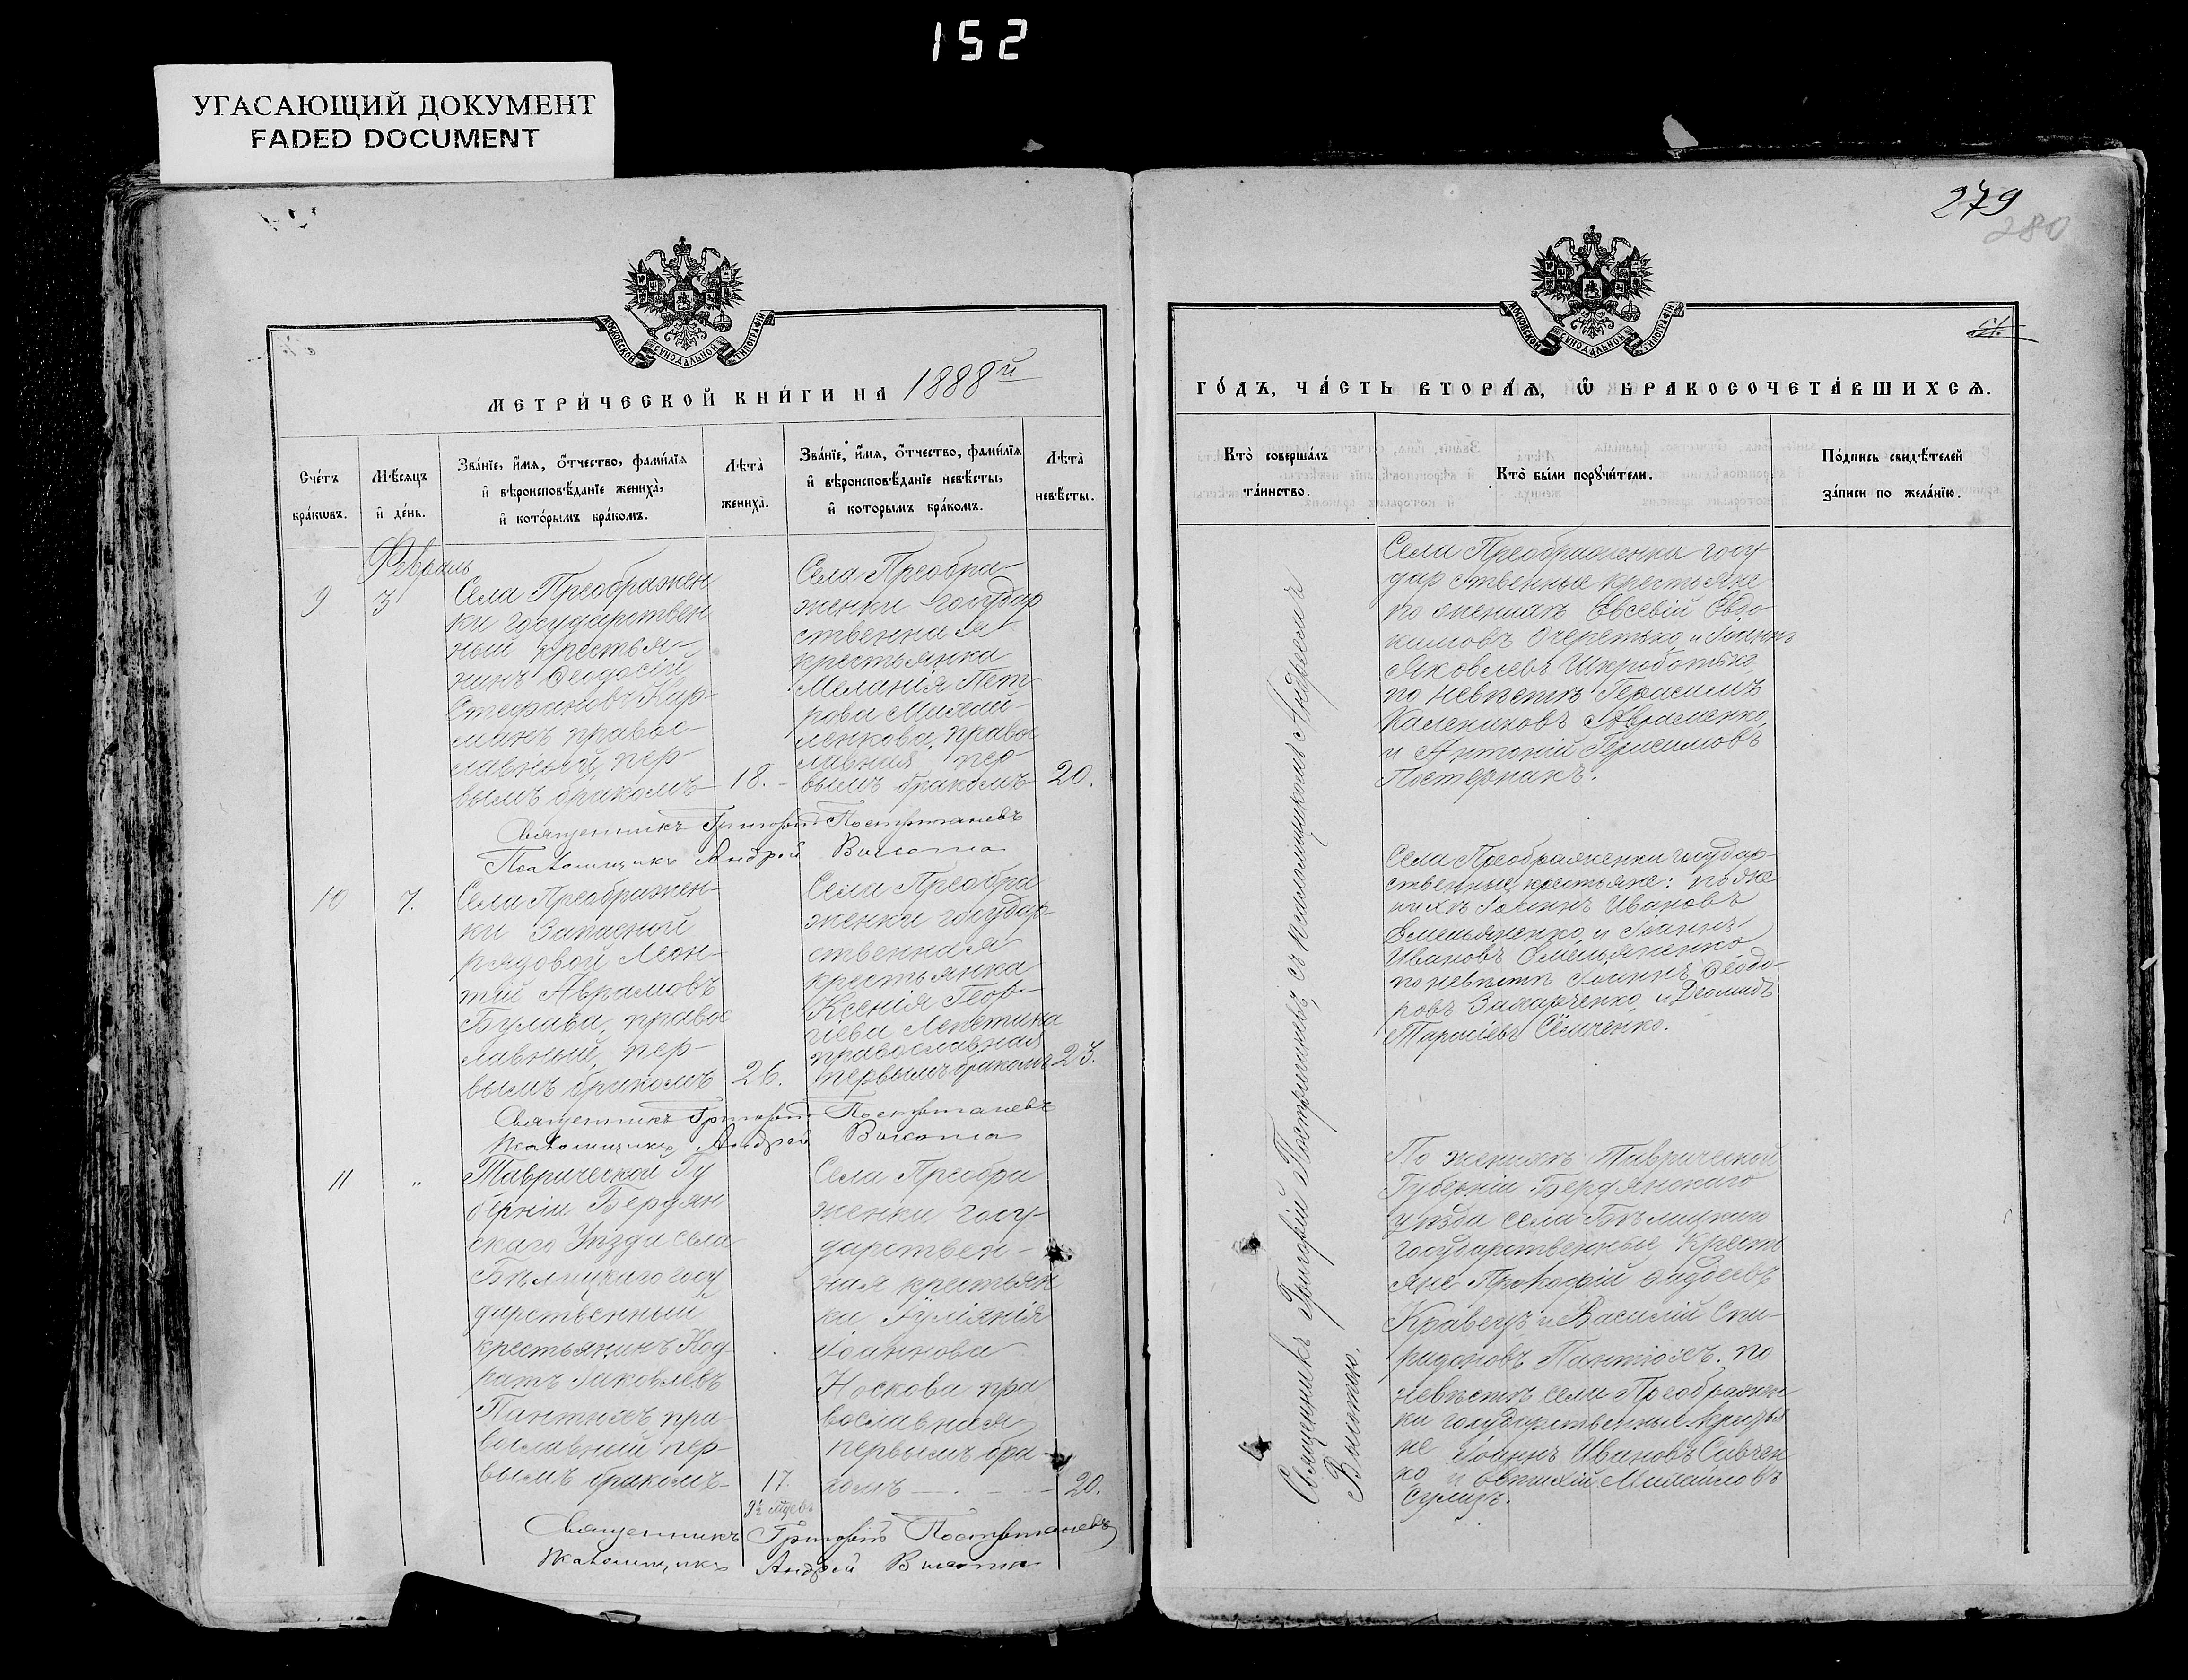 152
УГАСАЮЩИЙ ДОКУМЕНТ
FADED DOCUMENT
279
280
МОСКОВСКОЙ СѴНОДАЛЬНОЙ ТИПОГРАФІИ
МЕТРИ́ЧЕСКОЙ КНИ́ГИ НА 1888й
Сче́тъ бра́кѡвъ.
Мѣ́сяцъ и҆ де́нь.
Зва́нїе, и҆́мя, ѻ҆́тчество, фами́лїя
и҆ вѣроисповѣ́данїе жениха̀,
и҆ кото́рымъ бра́комъ.
Лѣта̀ жениха̀.
Зва́нїе, и҆́мя, ѻ҆́тчество, фами́лїя
и҆ вѣроисповѣ́данїе невѣ́сты,
и҆ которымъ бра́комъ.
Лѣта̀ невѣ́сты.
Февраль
9
3
Села Преображен
ки государствен
ный крестья-
нинъ Ѳеодосій
Стефановъ Кир-
правос-
лавный, пер-
вымъ бракомъ
18.
Села Преобра-
женки государ
ственная
крестьянка
Меланія Пет
рова Михай-
ленкова, правос
лавная пер-
вымъ бракомъ
20.
Священникъ Григорій
Псаломщикъ Андрей Висота
10
7.
Села Преображен-
ки Запасной
рядовой Леон-
тій Аврамовъ
Булава, правос
лавный, пер-
вымъ бракомъ
26.
Села Преобра
женки государ-
ственная
крестьянка
Ксенія Геор-
гіева Лепетина
православная
первымъ бракомъ
23.
Священникъ Григорій
Псаломщикъ Андрей Висота
11
"
Таврической Гу
берніи Бердян
скаго Уѣзда села
Бѣлицкаго госу
дарственный
крестьянинъ Код
ратъ Іаковлевъ
пра-
вославный пер-
вымъ бракомъ
17.
Села Преобра
женки госу-
дарствен-
ная крестьян
ка
Іоаннова
Носкова пра
вославная
первымъ бра
комъ
20.
Священникъ Григорій
Псаломщикъ Андрей Висота
МОСКОВСКОЙ СѴНОДАЛЬНОЙ ТИПОГРАФІИ
ГО́ДЪ, ЧА́СТЬ ВТОРА́Ѧ, Ѽ БРАКОСОЧЕТА́ВШИХСѦ.
Кто̀ соверша́лъ
та́инство.
Кто̀ бы́ли порꙋчи́тели.
По́дпись свидѣ́телей
за́писи по жела́нїю.
Священникъ Григорій съ псаломщикомъ Андреемъ
Висотою.
Села Преображенки госу-
дарственные крестьяне
по женихѣ Евсевій Евдо
кимовъ Очеретько и Іоаннъ
Яковлевъ Шкроботько
по невѣстѣ Герасимъ
Калениковъ Авраменко,
и Антоній Герасимовъ
Постернакъ.
Села Преображенки государ-
ственные крестьяне: по же
нихѣ Іоаннъ Ивановъ
Емельяненко и Іоаннъ
Ивановъ Омельяненко
по невѣстѣ Іоаннъ Ѳеодо-
ровъ Захарченко и Діомидъ
Тарасіевъ Семченко.
По женихѣ Таврической
Губерніи Бердянскаго
уѣзда села Бѣлицкаго
государственные крест
яне Прокофій
Кравецъ и Василій Спи-
ридоновъ по
невѣстѣ села Преображен
ки государственные крестья
не Іоаннъ Ивановъ Савчен
ко и Евтихій Михайловъ